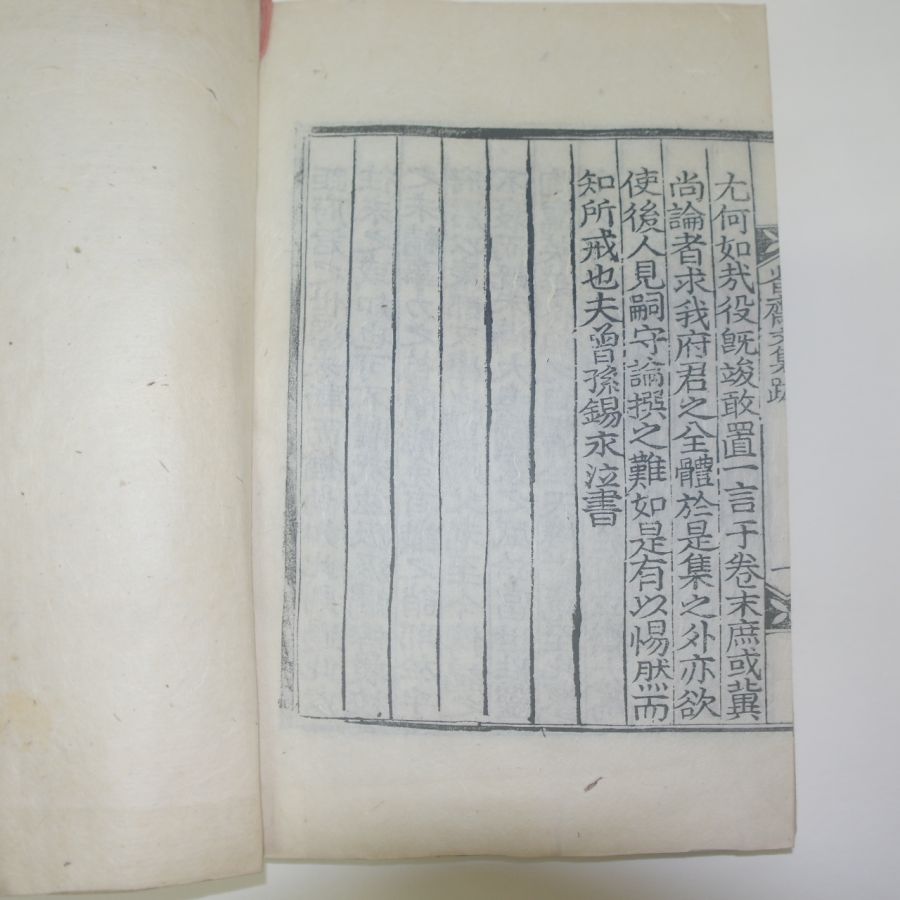 省齋文集跋
一
尤何如㢤役旣竣敢置一言于卷末庶或冀
尚論者求我府君之全體於是集之外亦欲
使後人見嗣守論撰之難如是有以惕然而
知所戒也夫曾孫錫永泣書